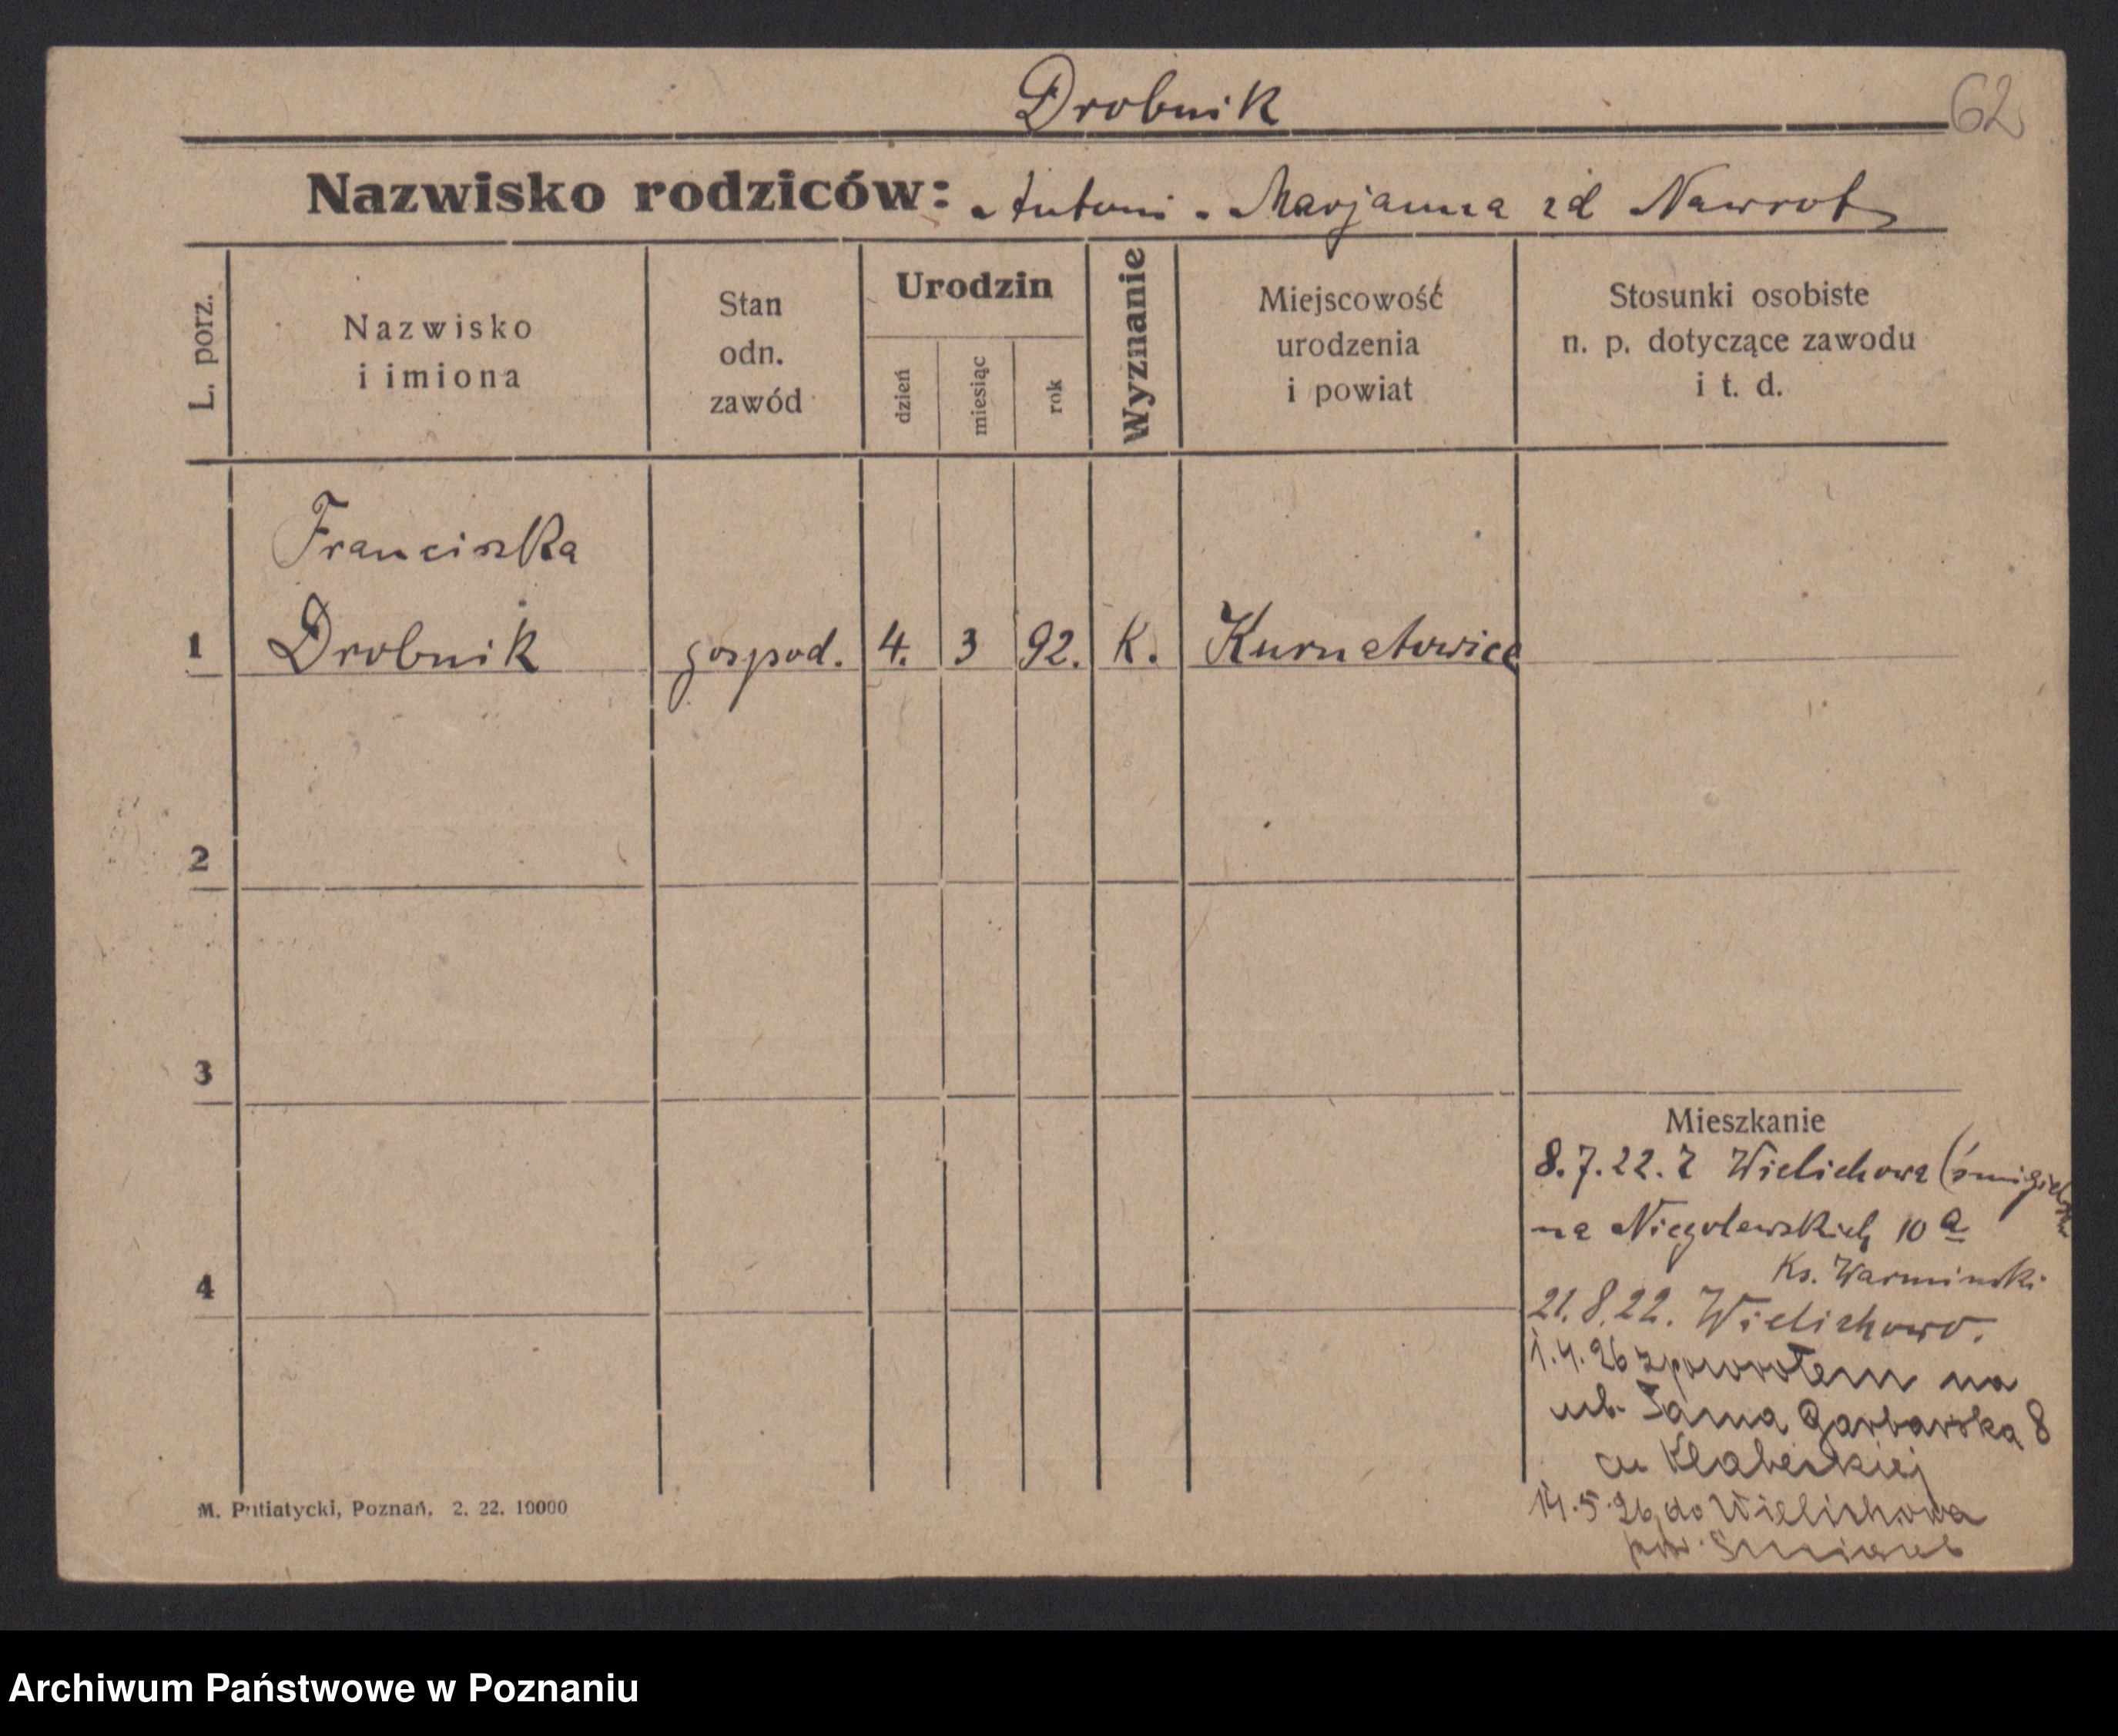 Drobnik
62
Nazwisko rodziców: Antoni - Marjanna zd Nawrot
L. porz.
Nazwisko
i imiona
Stan
odn.
zawód
Urodzin
dzień
miesiąc
rok
Wyznanie
Miejscowość
urodzenia
i powiat
Stosunki osobiste
n. p. dotyczące zawodu
i t. d.
Franciszka
1 Drobnik gospod. 4. 3 92. K. Kurnatowice
2
3
Mieszkanie
8.7.22. z Wielichowa
na Niegolewskich 10 a
Ks. Warminski
4
21.8.22. Wielichowo.
1.4.26 zpowrotem na
ul. Tama Garbarska 8
14.5.26 do Wielichowa
pow. Śmigiel
M. Putiatycki, Poznań, 2. 22. 10000
Archiwum Państwowe w Poznaniu